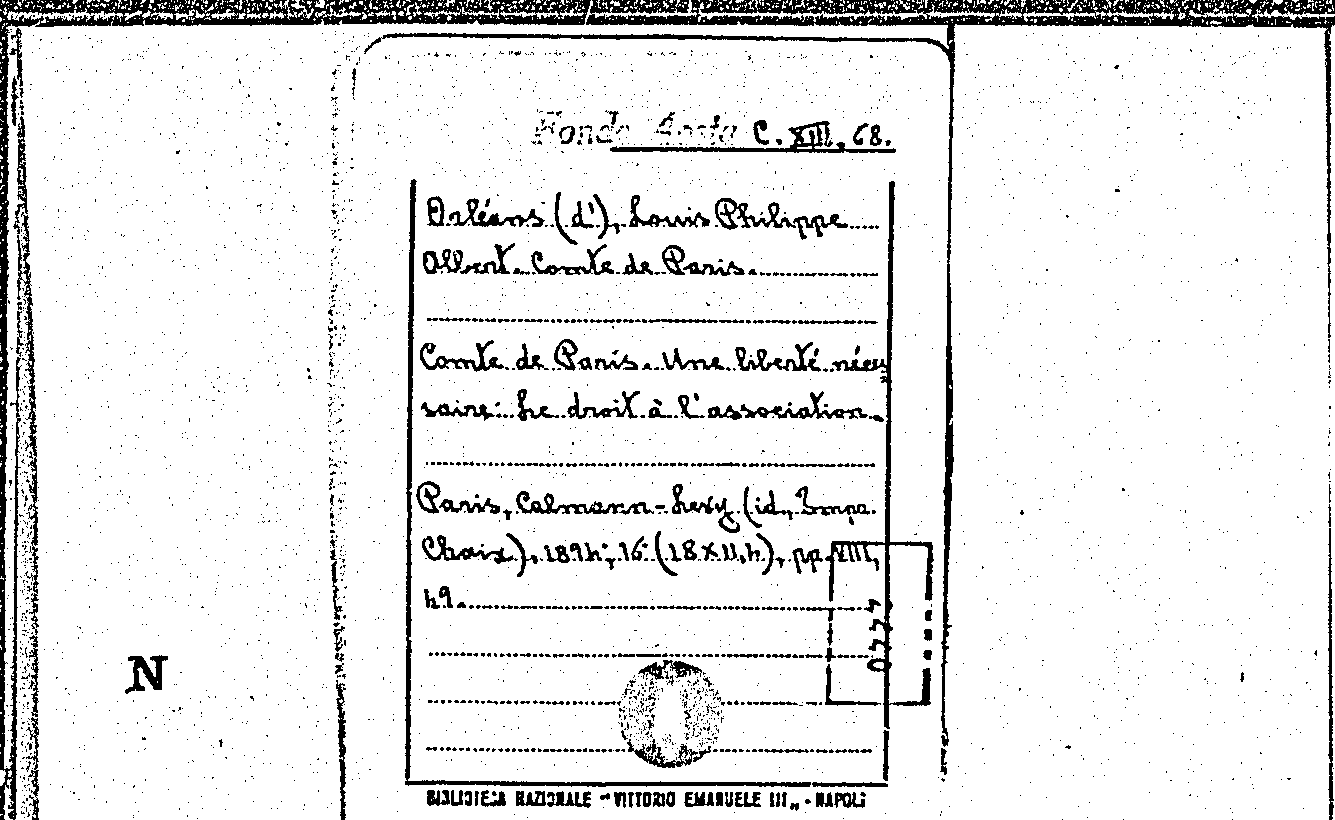 Fondo Aosta C. XIII. 68.
Orléans (d'), Louis Philippe
Albert. Comte de Paris.
Comte de Paris. Une liberté néces
saire: Le droit à l'association.
Paris, Calmann-Levy (id., Impr.
Chaix), 1894; 16° (18x11,4), pp. VIII,
49.
4440
N
BIBLIOTECA NAZIONALE "VITTORIO EMANUELE III„ - NAPOLI